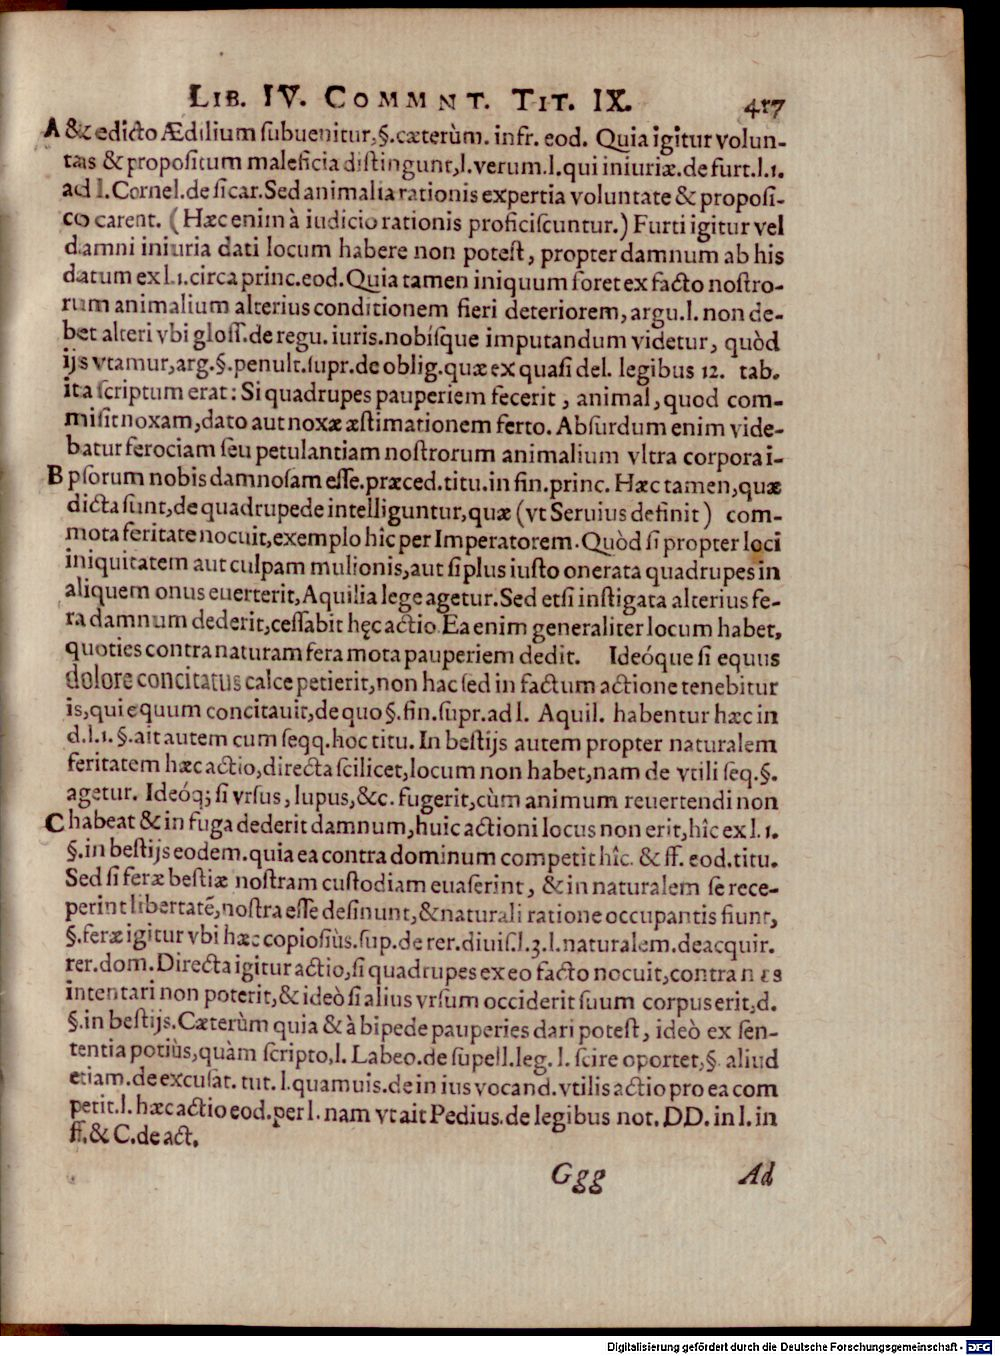 LIB. IV. COMMNT. TIT. IX. 417
A & edicto Ædilium subuenitur, §. cæterùm. infr. eod. Quia igitur volun-
tas & propositum maleficia distingunt, l. verum. l. qui iniuriæ. de furt. l. 1.
ad l. Cornel. de sicar. Sed animalia rationis expertia voluntate & proposi-
co carent. (Hæc enim à iudicio rationis proficiscuntur.) Furti igitur vel
damni iniuria dati locum habere non potest, propter damnum ab his
datum ex l. 1. circa princ. eod. Quia tamen iniquum foret ex facto nostro-
rum animalium alterius conditionem fieri deteriorem, argu. l. non de-
bet alteri vbi gloss. de regu. iuris. nobísque imputandum videtur, quòd
ijs vtamur, arg. §. penult. supr. de oblig. quæ ex quasi del. legibus 12. tab.
ita scriptum erat: Si quadrupes pauperiem fecerit, animal, quod com-
misit noxam, dato aut noxæ æstimationem ferto. Absurdum enim vide-
batur ferociam seu petulantiam nostrorum animalium vltra corpora i-
B psorum nobis damnosam esse. præced. titu. in fin. princ. Hæc tamen, quæ
dicta sunt, de quadrupede intelliguntur, quæ (vt Seruius definit) com-
mota feritate nocuit, exemplo hîc per Imperatorem. Quòd si propter loci
iniquitatem aut culpam mulionis, aut si plus iusto onerata quadrupes in
aliquem onus euerterit, Aquilia lege agetur. Sed etsi instigata alterius fe-
ra damnum dederit, cessabit hęc actio. Ea enim generaliter locum habet,
quoties contra naturam fera mota pauperiem dedit. Ideóque si equus
dolore concitatus calce petierit, non hac sed in factum actione tenebitur
is, qui equum concitauit, de quo §. fin. supr. ad l. Aquil. habentur hæc in
d. l. 1. §. ait autem cum seqq. hoc titu. In bestijs autem propter naturalem
feritatem hæc actio, directa scilicet, locum non habet, nam de vtili seq. §.
agetur. Ideóq; si vrsus, lupus, &c. fugerit, cùm animum reuertendi non
C habeat & in fuga dederit damnum, huic actioni locus non erit, hîc ex l. 1.
§. in bestijs eodem. quia ea contra dominum competit hîc. & ff. eod. titu.
Sed si feræ bestiæ nostram custodiam euaserint, & in naturalem se rece-
perint libertatē, nostra esse desinunt, & naturali ratione occupantis fiunt,
§. feræ igitur vbi hæc copiosiùs. sup. de rer. diuis. l. 3. l. naturalem. de acquir.
rer. dom. Directa igitur actio, si quadrupes ex eo facto nocuit, contra nes
intentari non poterit, & ideò si alius vrsum occiderit suum corpus erit, d.
§. in bestijs. Cæterùm quia & à bipede pauperies dari potest, ideò ex sen-
tentia potiùs, quàm scripto, l. Labeo. de supell. leg. l. scire oportet, §. aliud
etiam. de excusat. tut. l. quamuis. de in ius vocand. vtilis actio pro ea com
petit. l. hæc actio eod. per l. nam vt ait Pedius. de legibus not. DD. in l. in
ff. & C. de act.
Ggg Ad
Digitalisierung gefördert durch die Deutsche Forschungsgemeinschaft - DFG